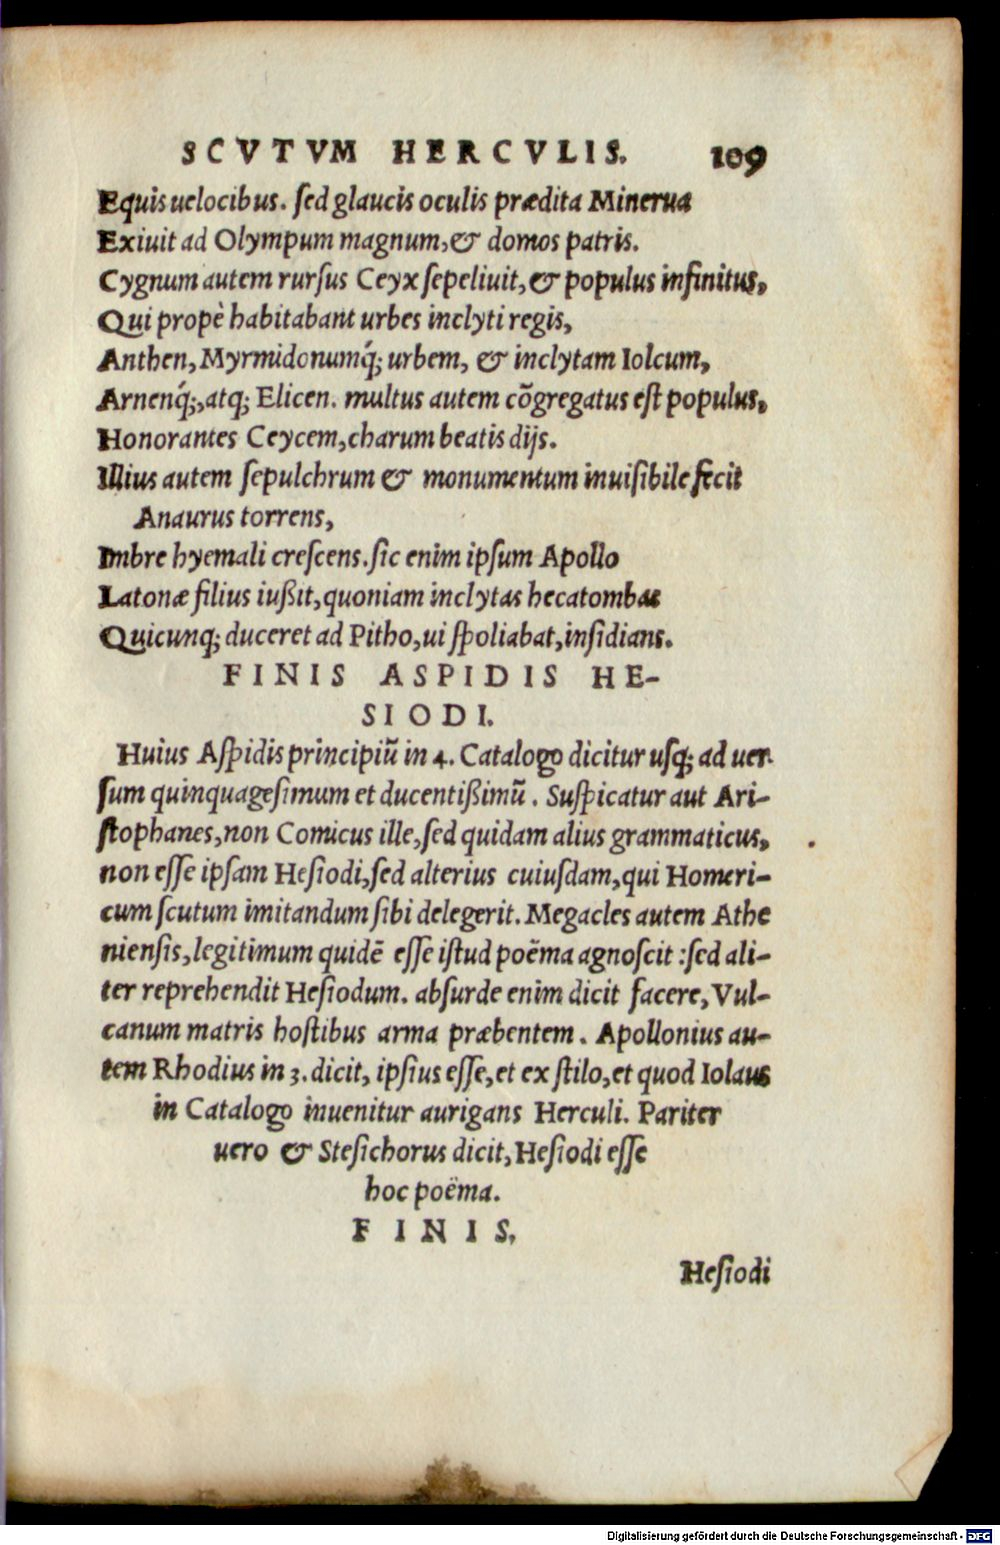 SCVTVM HERCVLIS. 109
Equis uelocibus. sed glaucis oculis prædita Minerua
Exiuit ad Olympum magnum,& domos patris.
Cygnum autem rursus Ceyx sepeliuit,& populus infinitus,
Qui propè habitabant urbes inclyti regis,
Anthen, Myrmidonumq́; urbem, & inclytam Iolcum,
Arnenq́;,atq; Elicen. multus autem cõgregatus est populus,
Honorantes Ceycem,charum beatis dijs.
Illius autem sepulchrum & monumentum inuisibile fecit
Anaurus torrens,
Imbre hyemali crescens.sic enim ipsum Apollo
Latonæ filius iußit,quoniam inclytas hecatombas
Quicunq; duceret ad Pitho,ui spoliabat,insidians.
FINIS ASPIDIS HE-
SIODI.
Huius Aspidis principiũ in 4. Catalogo dicitur usq; ad uer-
sum quinquagesimum et ducentißimũ. Suspicatur aut Ari-
stophanes,non Comicus ille,sed quidam alius grammaticus,
non esse ipsam Hesiodi,sed alterius cuiusdam,qui Homeri-
cum scutum imitandum sibi delegerit. Megacles autem Athe
niensis,legitimum quidẽ esse istud poëma agnoscit :sed ali-
ter reprehendit Hesiodum. absurde enim dicit facere, Vul-
canum matris hostibus arma præbentem. Apollonius au-
tem Rhodius in 3. dicit, ipsius esse,et ex stilo,et quod Iolaus
in Catalogo inuenitur aurigans Herculi. Pariter
uero & Stesichorus dicit,Hesiodi esse
hoc poëma.
FINIS,
Hesiodi
Digitalisierung gefördert durch die Deutsche Forschungsgemeinschaft - DFG